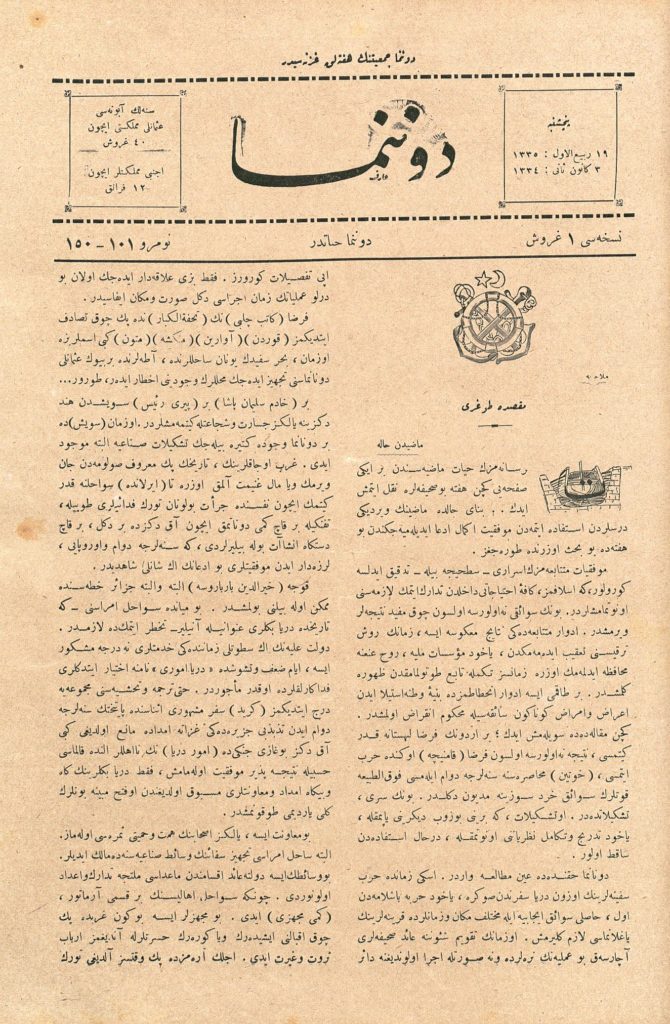 دوننما جمعیتنك هفته لق غزته سیدر
پنجشنبه
١٩ ربیع الاول : ١٣٣٥
٣ كانون ثانی : ١٣٣٤
دوننما
عارف
سنه لك آبونه سی
عثمانلی مملكتی ایچون
٤٠ غروش
اجنبی مملكتلر ایچون
١٢ فرانق
نسخه سی ١ غروش
دوننما حیاتدر
نومرو ١٠١ – ١٥٠
مقصده طوغری
ماضیدن حاله
رسانه مزك حیات ماضیه سندن بر ایكی
صفحه یی كچن هفته بو صحیفه لره نقل ایتمش
ایدك . بنای حالده ماضینك ویردیكی
درسلردن استفاده ایتمه دن موفقیت اكمال ادعا ایدیله میه جكندن بو
هفته ده بو بحث اوزرنده طوره جغز .
موفقیات متتابعه مزك اسراری – سطحیجه بیله – تدقیق ایدلسه
كورولور، كه اسلافمز، كافهٔ احتیاجاتی داخلدن تدارك ایتمك لازمه سنی
اونوتمامشلردر. بونك سوائقی نه اولورسه اولسون چوق مفید نتیجه لر
ویرمشدر . ادوار متتابعه ده كی نتایج معكوسه ایسه ، زمانك روش
ترقیسنی تعقیب ایده مه مكدن ، یاخود مؤسسات ملیه ، روح عنعنه
محافظه ایدلمه مك اوزره زمانسز تكمله تابع طوتولمامقدن ظهوره
كلمشدر . بر طاقمی ایسه ادوار انحطاطمزده بنیهٔ وطنه استیلا ایدن
اعراض و امراض كوناكون سائقه سیله محكوم انقراض اولمشدر .
كچن مقاله ده ده سویله مش ایدك ؛ بر اردونك فرضا لهستانه قدر
كیتمسی ، نتیجه نه اولورسه اولسون فرضا (قامنیچه) اوكنده حرب
ایتمسی ، (خوتین) محاصره سنه سنه لرجه دوام ایله مسی فوق الطبیعه
قوتلرك سوائق خرد سوزینه مدیون دكلدر . بونك سری ،
تشكیلاتده در . او تشكیلات ، كه برنی بوزوب دیكرنی یاپمقله ،
یاخود تدریج وتكامل نظریاتنی اونوتمقله ، درحال استفاده دن
ساقط اولور .
دوننما حقنده ده عین مطالعه واردر. اسكی زمانده حرب
سفینه لرینك اوزون دریا سفرندن صوكره ، یاخود حربه باشلامه دن
اول ، حاصلی سوائق ایجابیه ایله مختلف مكان وزمانلرده قرینه لرینك
یاغلانماسی لازم كلیرمش . اوزمانك تقویم شئوننه عائد صحیفه لری
آچارسه ق بو عملیه نك نره لرده ونه صورتله اجرا اولوندیغنه دائر
ایی تفصیلات كورورز . فقط بزی علاقه دار ایده جك اولان بو
درلو عملیاتك زمان اجراسی دكل صورت ومكان ایفاسیدر.
فرضا (كاتب چلبی) نك (تحفة الكبار) نده پك چوق تصادف
ایتدیكمز (قوردن) (آوارین) (متون) كبی اسملریزه
اوزمان ، بحر سفیدك یونان ساحللرنده ، آطه لرنده بر بیوك عثمانلی
دونانماسنی تجهیز ایده جك محللرك وجودینی اخطار ایدر ، طورور...
بر (خادم سلیمان پاشا) بر (پیری رئیس) سویشدن هند
دكزینه یالكز جسارت وشجاعتله كیتمه مشلردر. اوزمان (سویش) ده
بر دونانما وجوده كتیره بیله جك تشكیلات صناعیه البته موجود
ایدی . غرب اوجاقلرینك ، تاریخك پك معروف صولومه دن جان
ویرمك ویا مال غنیمت آلمق اوزره تا (ایرلانده) سواحلنه قدر
كیتمك ایچون نفسنده جرأت بولونان تورك فدائیلری طوپیله ،
تفنكیله بر قاچ كمی دوناتمق ایچون آق دكزده بر دكل ، بر قاچ
دستكاه انشاآت بوله بیلیرلردی ، كه سنه لرجه دوام واوروپایی ،
لرزه دار ایدن موفقیتلری بو ادعانك اك شانلی شاهدیدر .
قوجه (خیرالدین بارباروسه) البته والبته جزائر خطه سنده
ممكن اوله بیلنی بولمشدر . بو میانده سواحل امراسنی – كه
تاریخده دریا بكلری عنوانیله آنیلیر– تخطر ایتمك ده لازمدر .
دولت علیه نك اك سطوتلی زماننده كی خدمتلری نه درجه مشكور
ایسه ، ایام ضعف و تشوشده «دریا اموری» نامنه اختیار ایتدكلری
فداكارلقلرده اوقدر مأجوردر . حتی ترجمه وتحشیه سنی مجموعه یه
درج ایتدیكمز (كرید) سفر مشهوری اثناسنده پایتختك سنه لرجه
دوام ایدن تذبذبی جزیره ده كی غزاته امداده مانع اولدیغی كبی
آق دكز بوغازی جنكی ده (امور دریا) نك نااهللر النده قالماسی
حسبیله نتیجه پذیر موفقیت اوله مامش ، فقط دریا بكلرینك كاه
وبیكاه امداد ومعاونتلری مسبوق اولدیغندن او فتح مبینه بونلرك
كلی یاردیمی طوقونمشدر .
بو معاونت ایسه ، یالكز اصحابنك همت وحمیتی ثمره سی اوله ماز.
البته ساحل امراسی تجهیز سفائنك وسائط صناعیه سنه ده مالك ایدیلر.
بو وسائطك ایسه دولته عائد اقسامندن ماعداسی ملتجه تدارك واعداد
اولونوردی . چونكه سواحل اهالیسنك بر قسمی آرماتور ،
(كمی مجهزی) ایدی . بو مجهزلر ایسه بو كون غربده پك
چوق اقبالنی ایشیده رك ویا كوره رك حسرتلرله آندیغمز ارباب
ثروت وغیرت ایدی . اجلك آره مزده پك وقتسز آلدیغی تورك